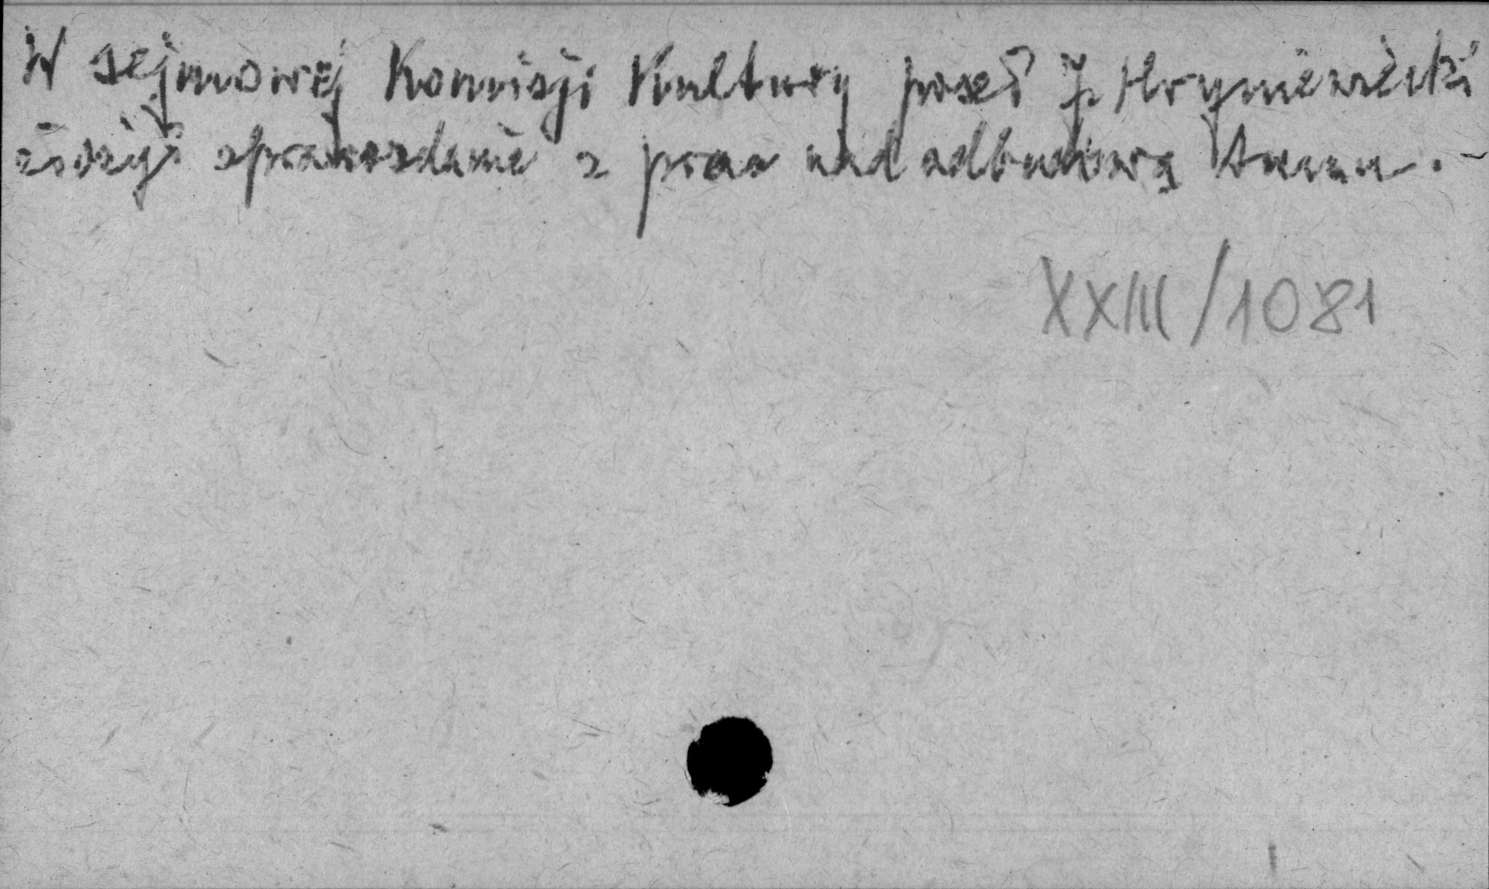 W sejmowej Komisji Kultury poseł J. Hryniewiecki
złożył sprawozdanie z prac nad odbudową Zamku. -
XXIII/1081